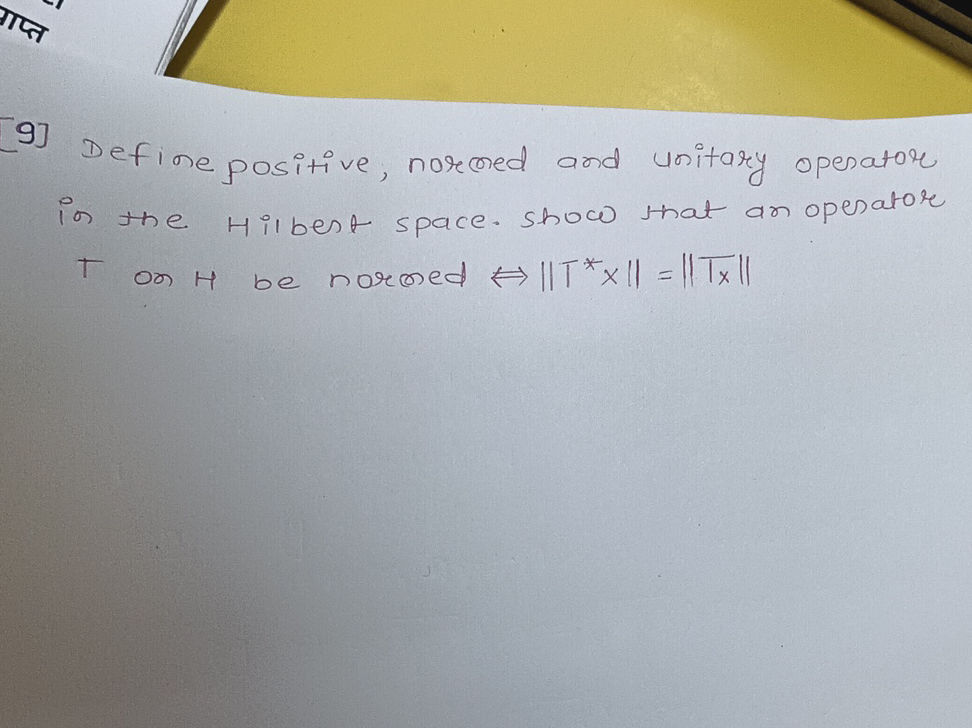 ाप्त
[9] Define positive, normed and unitary operator
in the Hilbert space. show that an operator
T on H be normed ⇔ ||T*x|| = ||Tx||